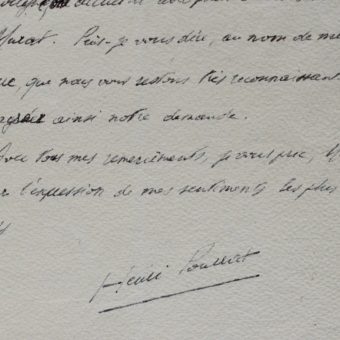 Murat. Puis-je vous dire, au nom de me
que, que nous vous restons très reconnaissant
ainsi notre demande.
Avec tous mes remerciements, je vous prie,
r l'expression de mes sentiments les plus
Henri Pourrat